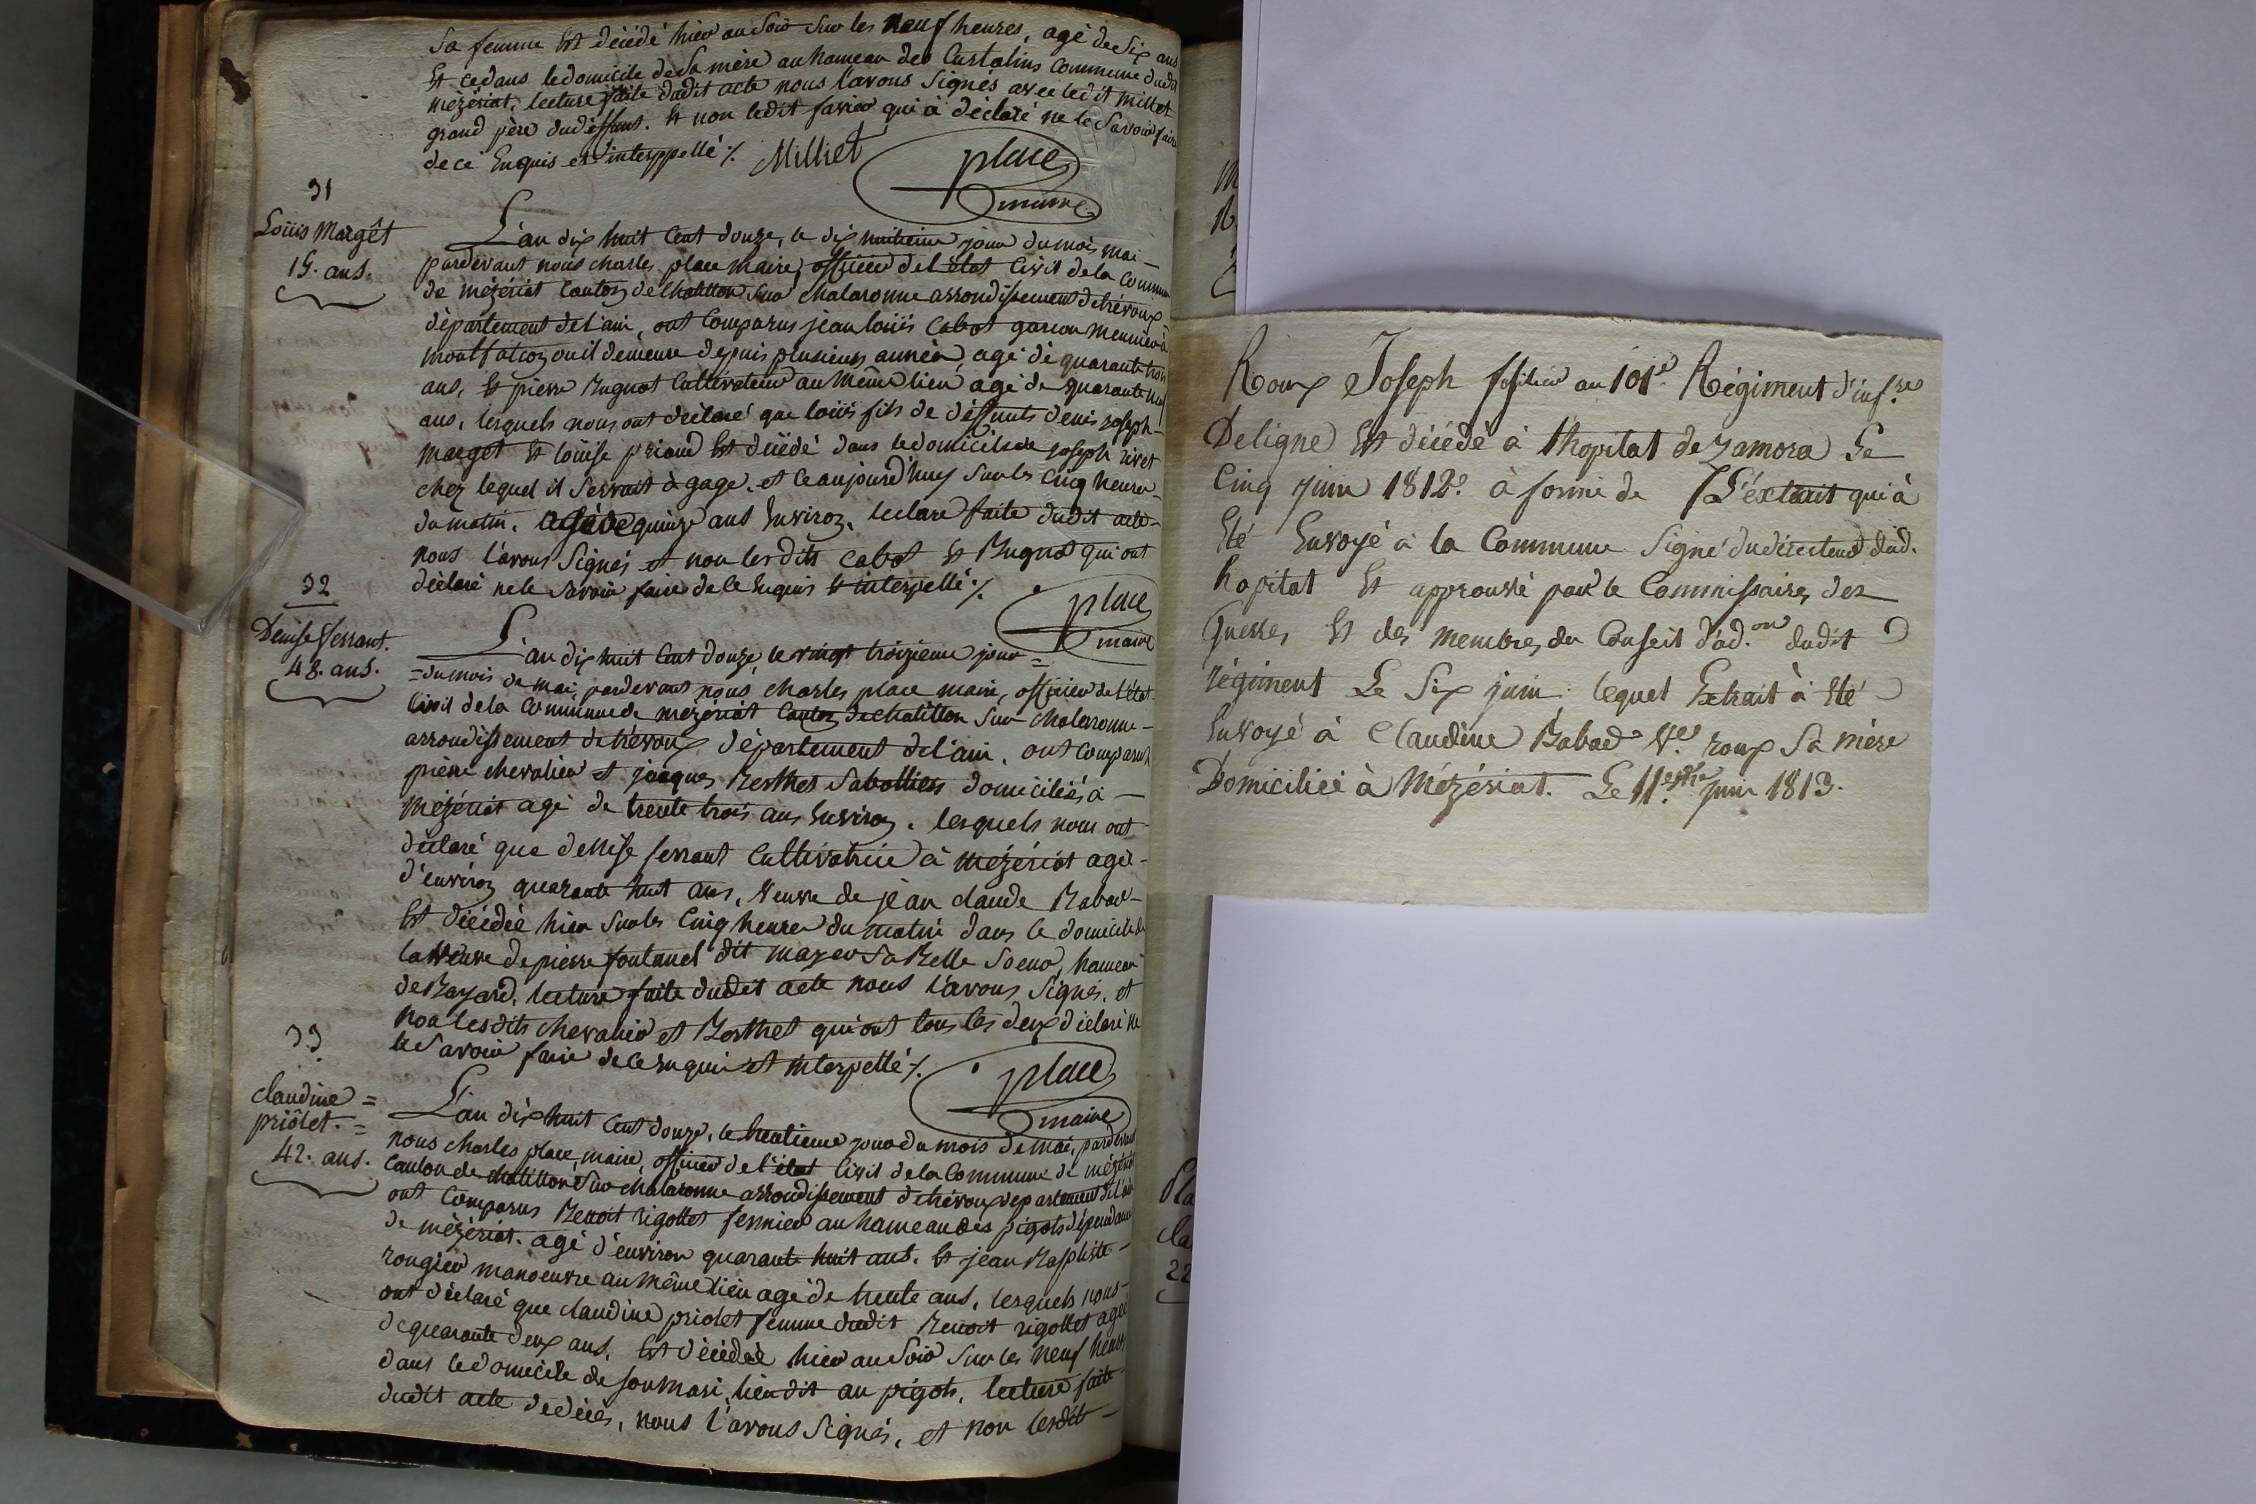 Sa femme Est décédé hier au Soir Sur les neuf heures, agé de Six ans
Et ce dans le domicile de Sa mère au hameau des Custalins Commune dudit
mézériat, lecture faite dudit acte nous l'avons Signés avec ledit milliet
grand père dudéffunt. Et non ledit favier qui à déclaré ne le Savoir faire
de ce Enquis et interppellé ./. Milliet place
maire
31
Loüis Margêt
15. ans.
L'an dix huit Cent douze, le dix huitieme jour du mois mai –
pardevant nous charles place Maire, officier de l'état Civil de la Commune
de mézériat Canton de Chatillon Sur chalaronne arrondissement de trévoux
département de l'ain, ont Comparus jean loüis Cabot garcon Meunier à
montfalcon ou il demeure depuis plusieurs année, agé de quarante trois
ans, Et pierre Bugnot Cultivateur au Même lieu agé de quarante neuf
ans, lesquels nous ont déclaré que loüis fils de déffunts denis joseph –
marget Et loüise priaud Est décédé dans le domicile de joseph rivet
chez lequel il Servait à gage, et ce aujourd'huy Sur les Cinq heures
du matin, agé de quinze ans Environ. lecture faite dudit acte –
nous l'avons Signés et non lesdits Cabot Et Bugnot qui ont
déclaré ne le Savoir faire de Ce Enquis Et interpellé ./. place
maire
32
Denise ferrant.
48. ans.
L'an dix huit Cent douze, le vingt troizieme jour =
= du mois de mai, pardevant nous charles place maire, officier de l'état
Civil de la Commune de mézériat Canton de chatillon Sur chalaronne –
arrondissement de trévoux département de l'ain, ont Comparus
pierre chevalier et jacques Berthet Sabottiers domiciliés à –
mézériat agé de trente trois ans Environ, lesquels nous ont –
déclaré que denise ferrant Cultivatrice à mézériat agé –
d'environ quarante huit ans, Veuve de jean claude Babad –
Est décédée hier Sur les Cinq heures du matin dans le domicile de
la Veuve de pierre fontanel dit mazer Sa Belle Soeur, hameau
de Bayard, lecture faite dudit acte nous l'avons Signés, et
non lesdits chevalier et Berthet qui ont tous les deux déclaré ne
le Savoir faire de Ce Enquis et interpellé ./. place
maire
33
claudine =
priôlet. =
42. ans.
L'an dix huit Cent douze, le trentieme jour du mois de mai, pardevant
nous charles place, maire, officier de l'état Civil de la Commune de mézériat
Canton de chatillon Sur chalaronne arrondissement de trévoux département de l'ain
ont Comparus Benoit rigottet fermier au hameau des pigots dépendance
de mézériat. agé d'environ quarante huit ans. Et jean Baptiste –
rongier manoeuvre au même lieu agé de trente ans, lesquels nous –
ont déclaré que claudine priolet femme dudit Benoit rigottet agée
de quarante deux ans, Est décédée hier au Soir Sur les neuf heures
dans le domicile de Son mari, lieu dit au pigots, lecture faite –
dudit acte de décès, nous l'avons Signés, et non lesdits –
Roux Joseph fusilier au 101.e Régiment d'inf.rie
De ligne Est décédé à l'hopital de Zamora Le
Cinq juin 1812. à forme de L'éxtrait qui à
Eté Envoyé à la Commune Signé du directeur dud.
hopital Et approuvé par le Commissaire des
Guerres Et des membres du Conseil d'ad.on dudit
régiment Le Six juin, lequel Extrait à Eté
Envoyé à Claudine Babad V.e roux Sa mère
Domiciliée à Mézériat. Le 11. juin 1813.
22